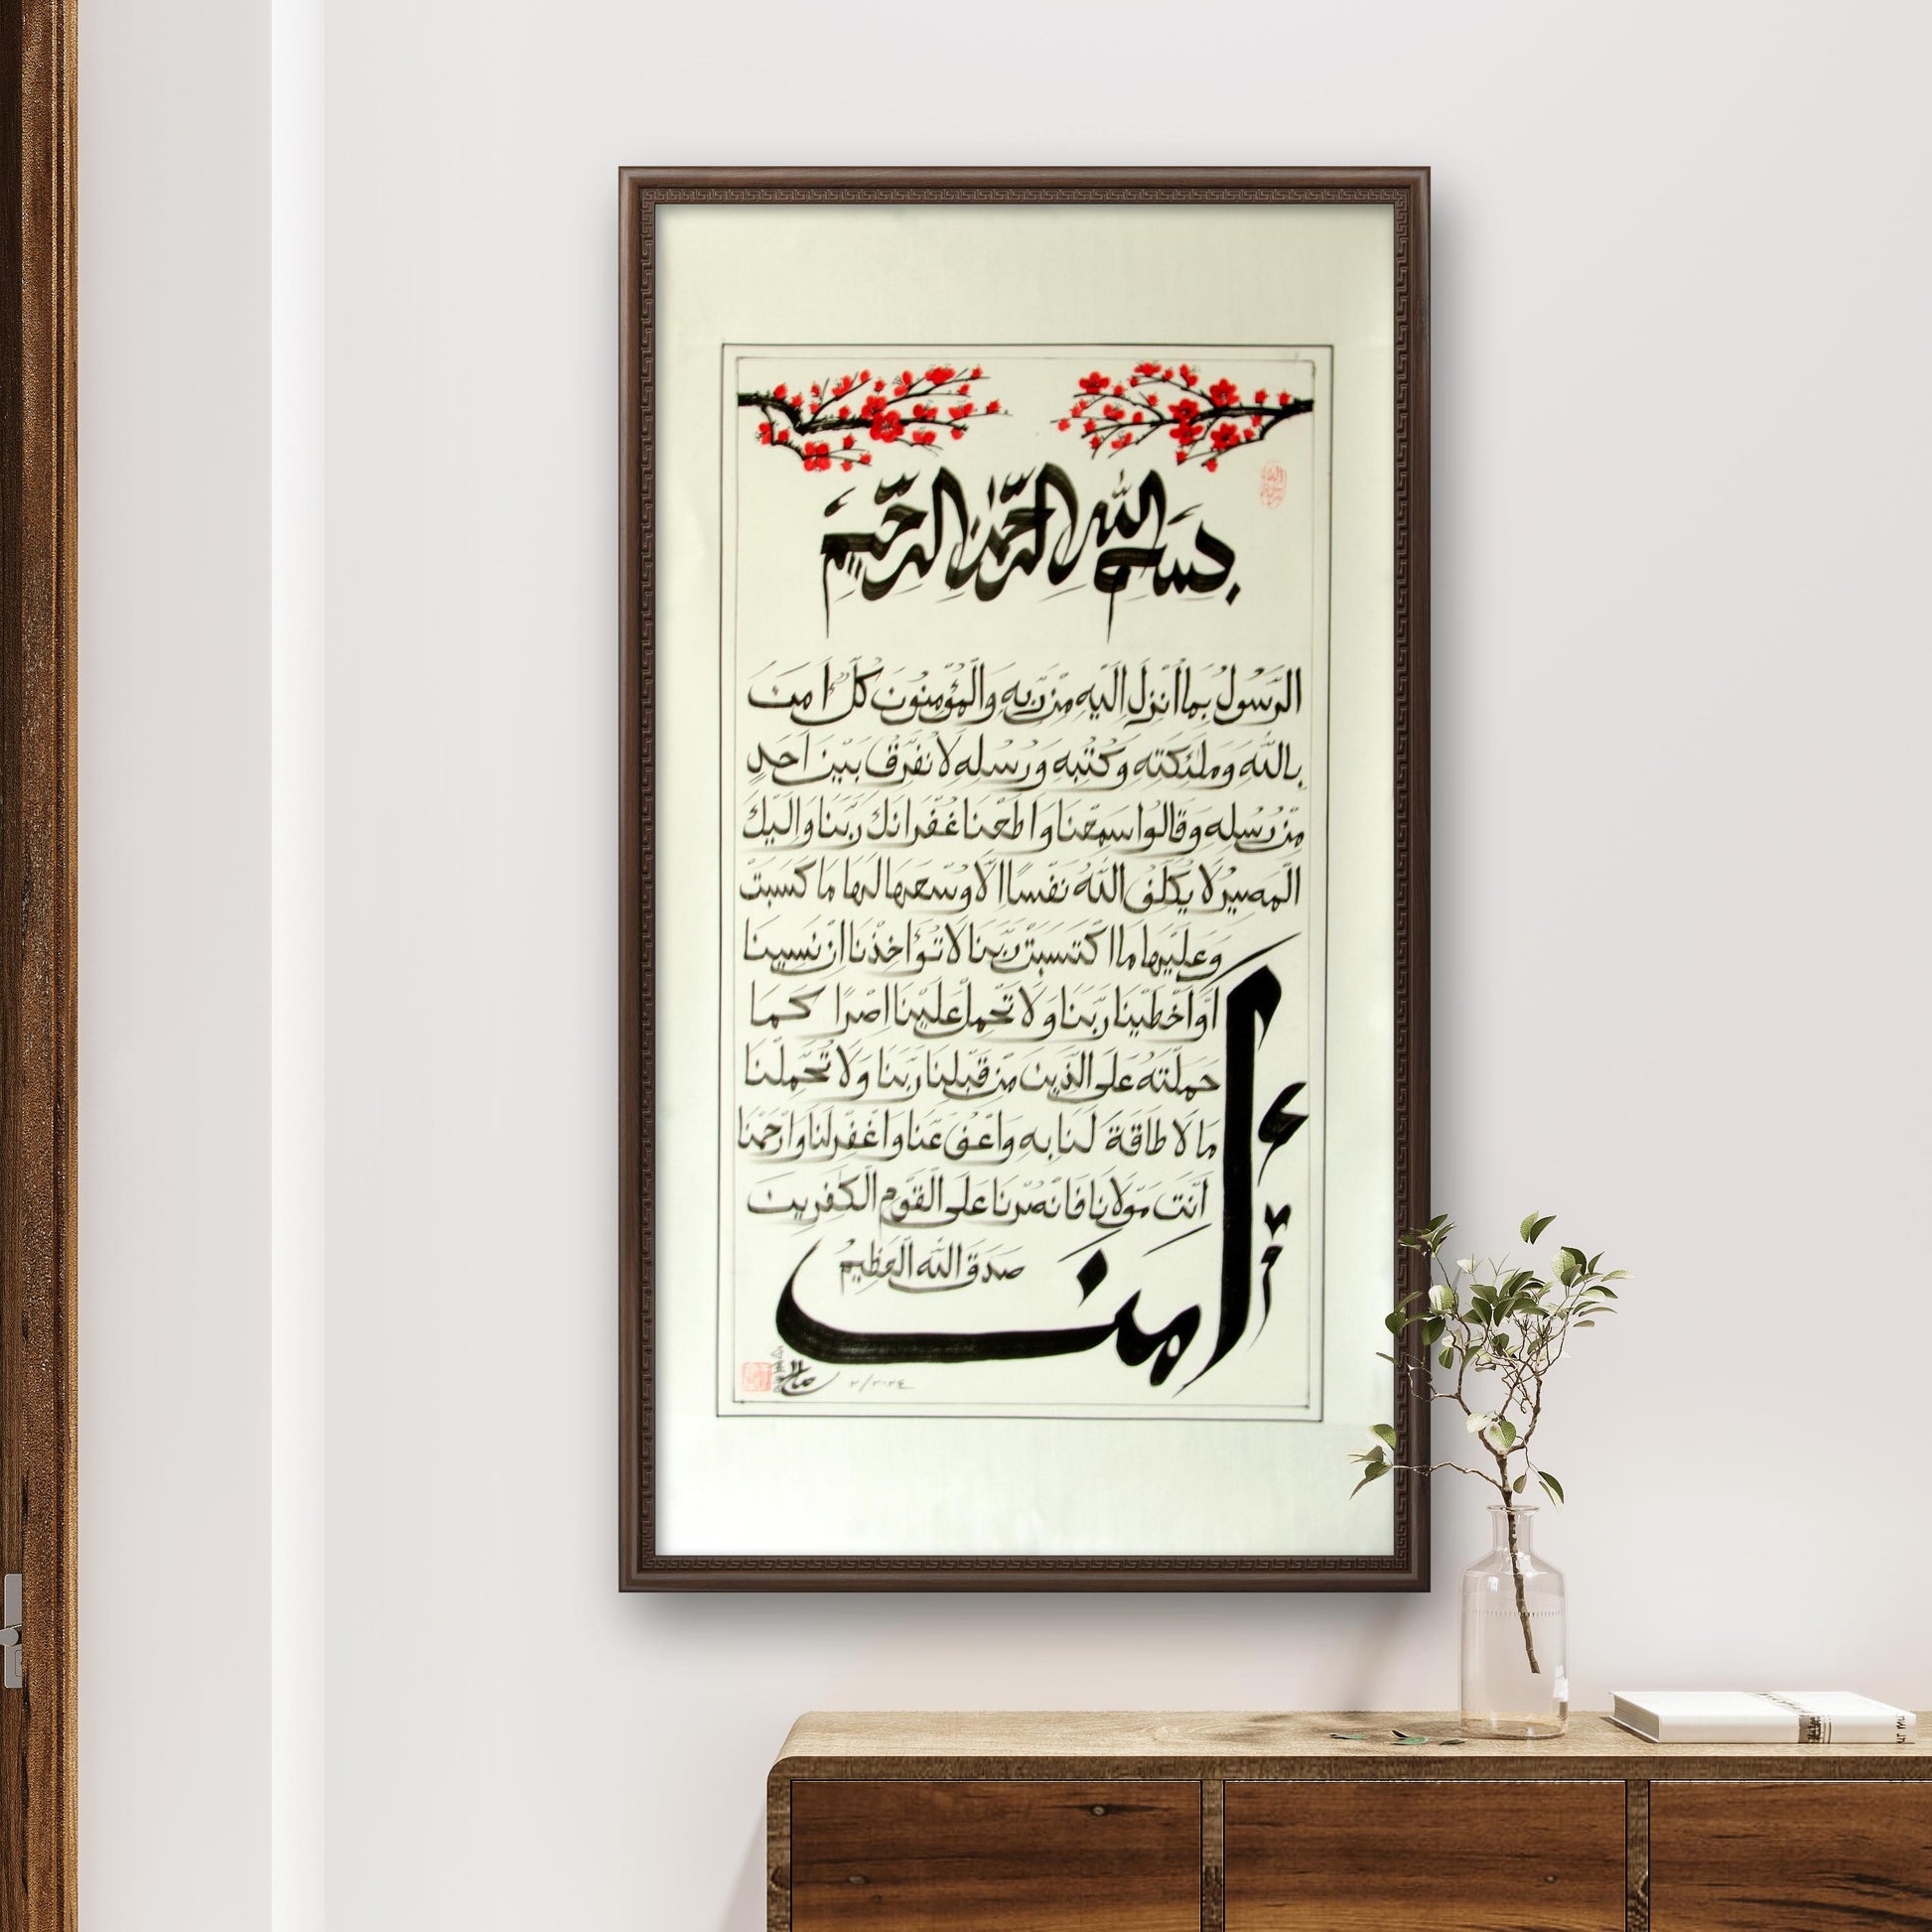 بِسْمِ اللّٰهِ الرَّحْمٰنِ الرَّحِيْمِ
الرَّسُولُ بِمَا اُنْزِلَ اِلَيْهِ مِنْ رَبِّهِ وَالْمُؤْمِنُونَ كُلٌّ اٰمَنَ
بِاللّٰهِ وَمَلٰئِكَتِهِ وَكُتُبِهِ وَرُسُلِهِ لَا نُفَرِّقُ بَيْنَ اَحَدٍ
مِنْ رُسُلِهِ وَقَالُوا سَمِعْنَا وَاَطَعْنَا غُفْرَانَكَ رَبَّنَا وَاِلَيْكَ
الْمَصِيرُ لَا يُكَلِّفُ اللّٰهُ نَفْسًا اِلَّا وُسْعَهَا لَهَا مَا كَسَبَتْ
وَعَلَيْهَا مَا اكْتَسَبَتْ رَبَّنَا لَا تُؤَاخِذْنَا اِنْ نَسِينَا
اَوْ اَخْطَيْنَا رَبَّنَا وَلَا تَحْمِلْ عَلَيْنَا اِصْرًا كَمَا
حَمَلْتَهُ عَلَى الَّذِينَ مِنْ قَبْلِنَا رَبَّنَا وَلَا تُحَمِّلْنَا
مَا لَا طَاقَةَ لَنَا بِهِ وَاعْفُ عَنَّا وَاغْفِرْ لَنَا وَارْحَمْنَا
اَنْتَ مَوْلَانَا فَانْصُرْنَا عَلَى الْقَوْمِ الْكٰفِرِينَ
صَدَقَ اللّٰهُ الْعَظِيمُ
اٰمَنَ